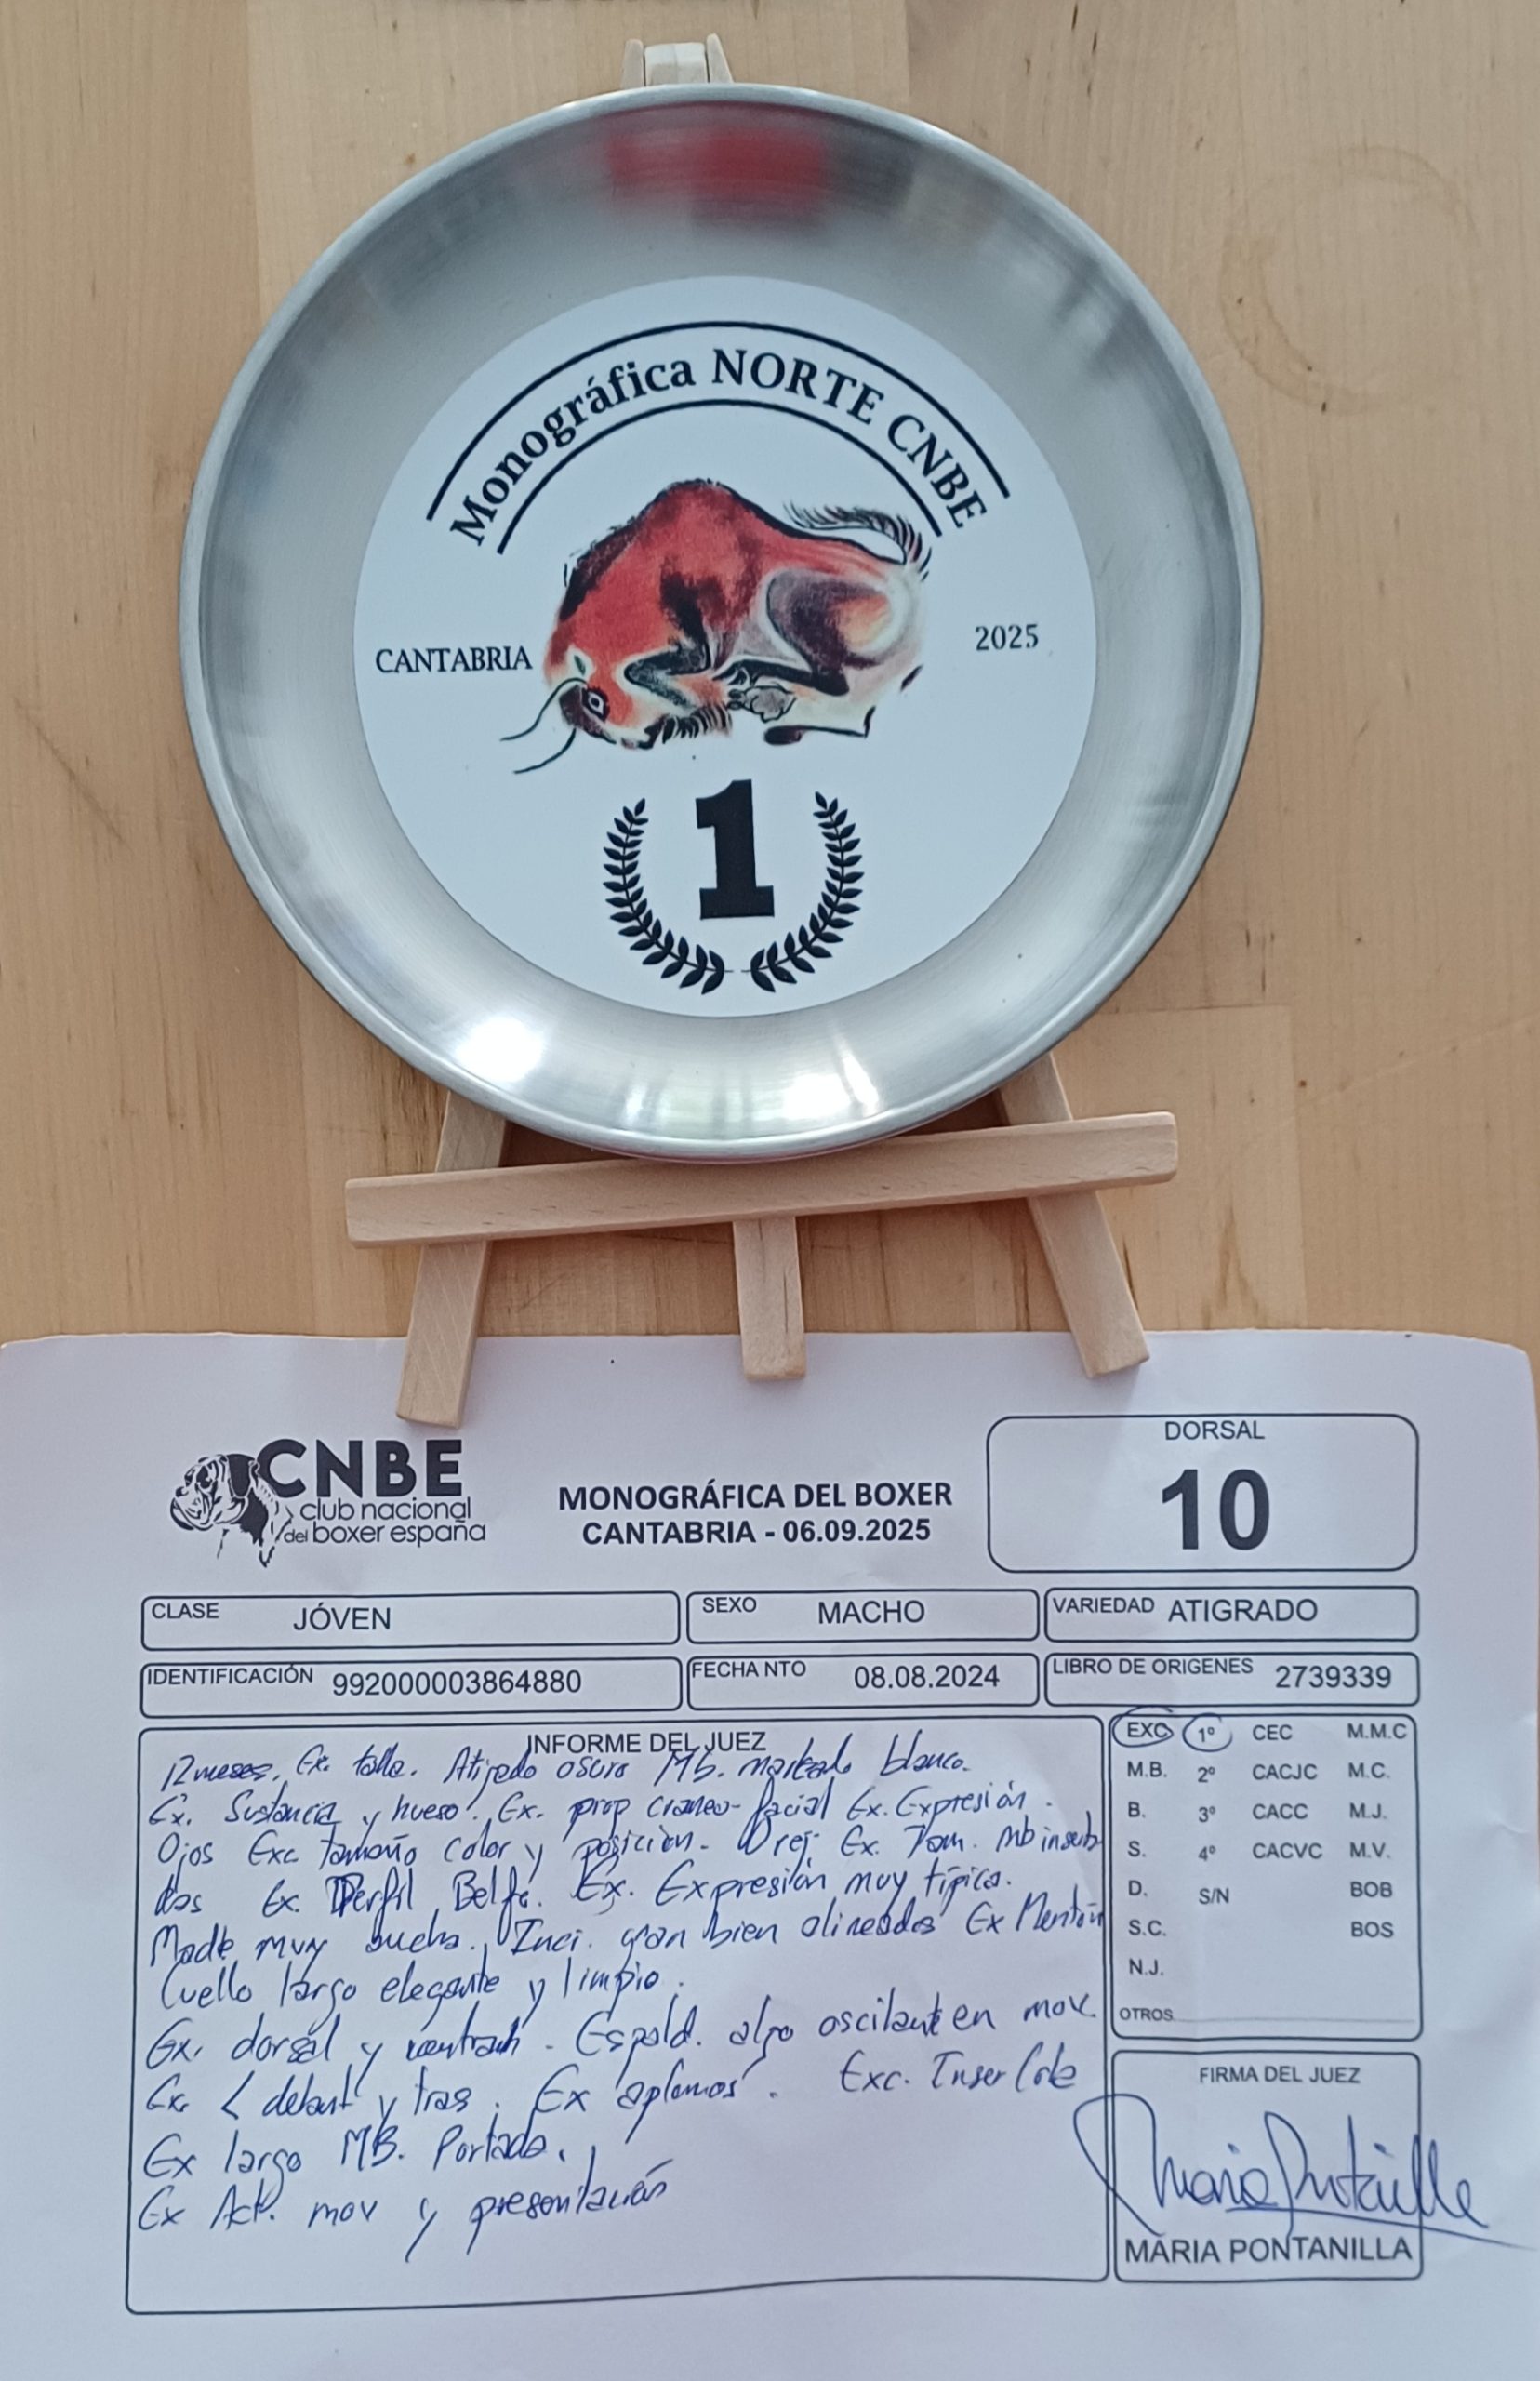 Monográfica NORTE CNBE
CANTABRIA
2025
1
CNBE
club nacional
del boxer españa
MONOGRÁFICA DEL BOXER
CANTABRIA - 06.09.2025
DORSAL
10
CLASE JÓVEN
SEXO MACHO
VARIEDAD ATIGRADO
IDENTIFICACIÓN 992000003864880
FECHA NTO 08.08.2024
LIBRO DE ORIGENES 2739339
INFORME DEL JUEZ
12 meses. Ex. talla. Atigrado oscuro Mb. marcado blanco.
Ex. Sustancia y hueso. Ex. prop craneo-facial Ex. Expresión.
Ojos Exc tamaño color y posición. Orej. Ex. Tam. mb inserta
das Ex. Perfil, Belfo. Ex. Expresión muy típica.
muy Inci. gran bien alineados Ex Mentón
Cuello largo elegante y limpio.
Ex. dorsal y Espald. algo oscilante en mov.
Ex. < delant y tras. Ex aplomos. Exc. Inser Cola
Ex largo MB. Portada.
Ex Act. mov y presentación
EXC 1º CEC M.M.C
M.B. 2º CACJC M.C.
B. 3º CACC M.J.
S. 4º CACVC M.V.
D. S/N BOB
S.C. BOS
N.J.
OTROS
FIRMA DEL JUEZ
MARIA PONTANILLA